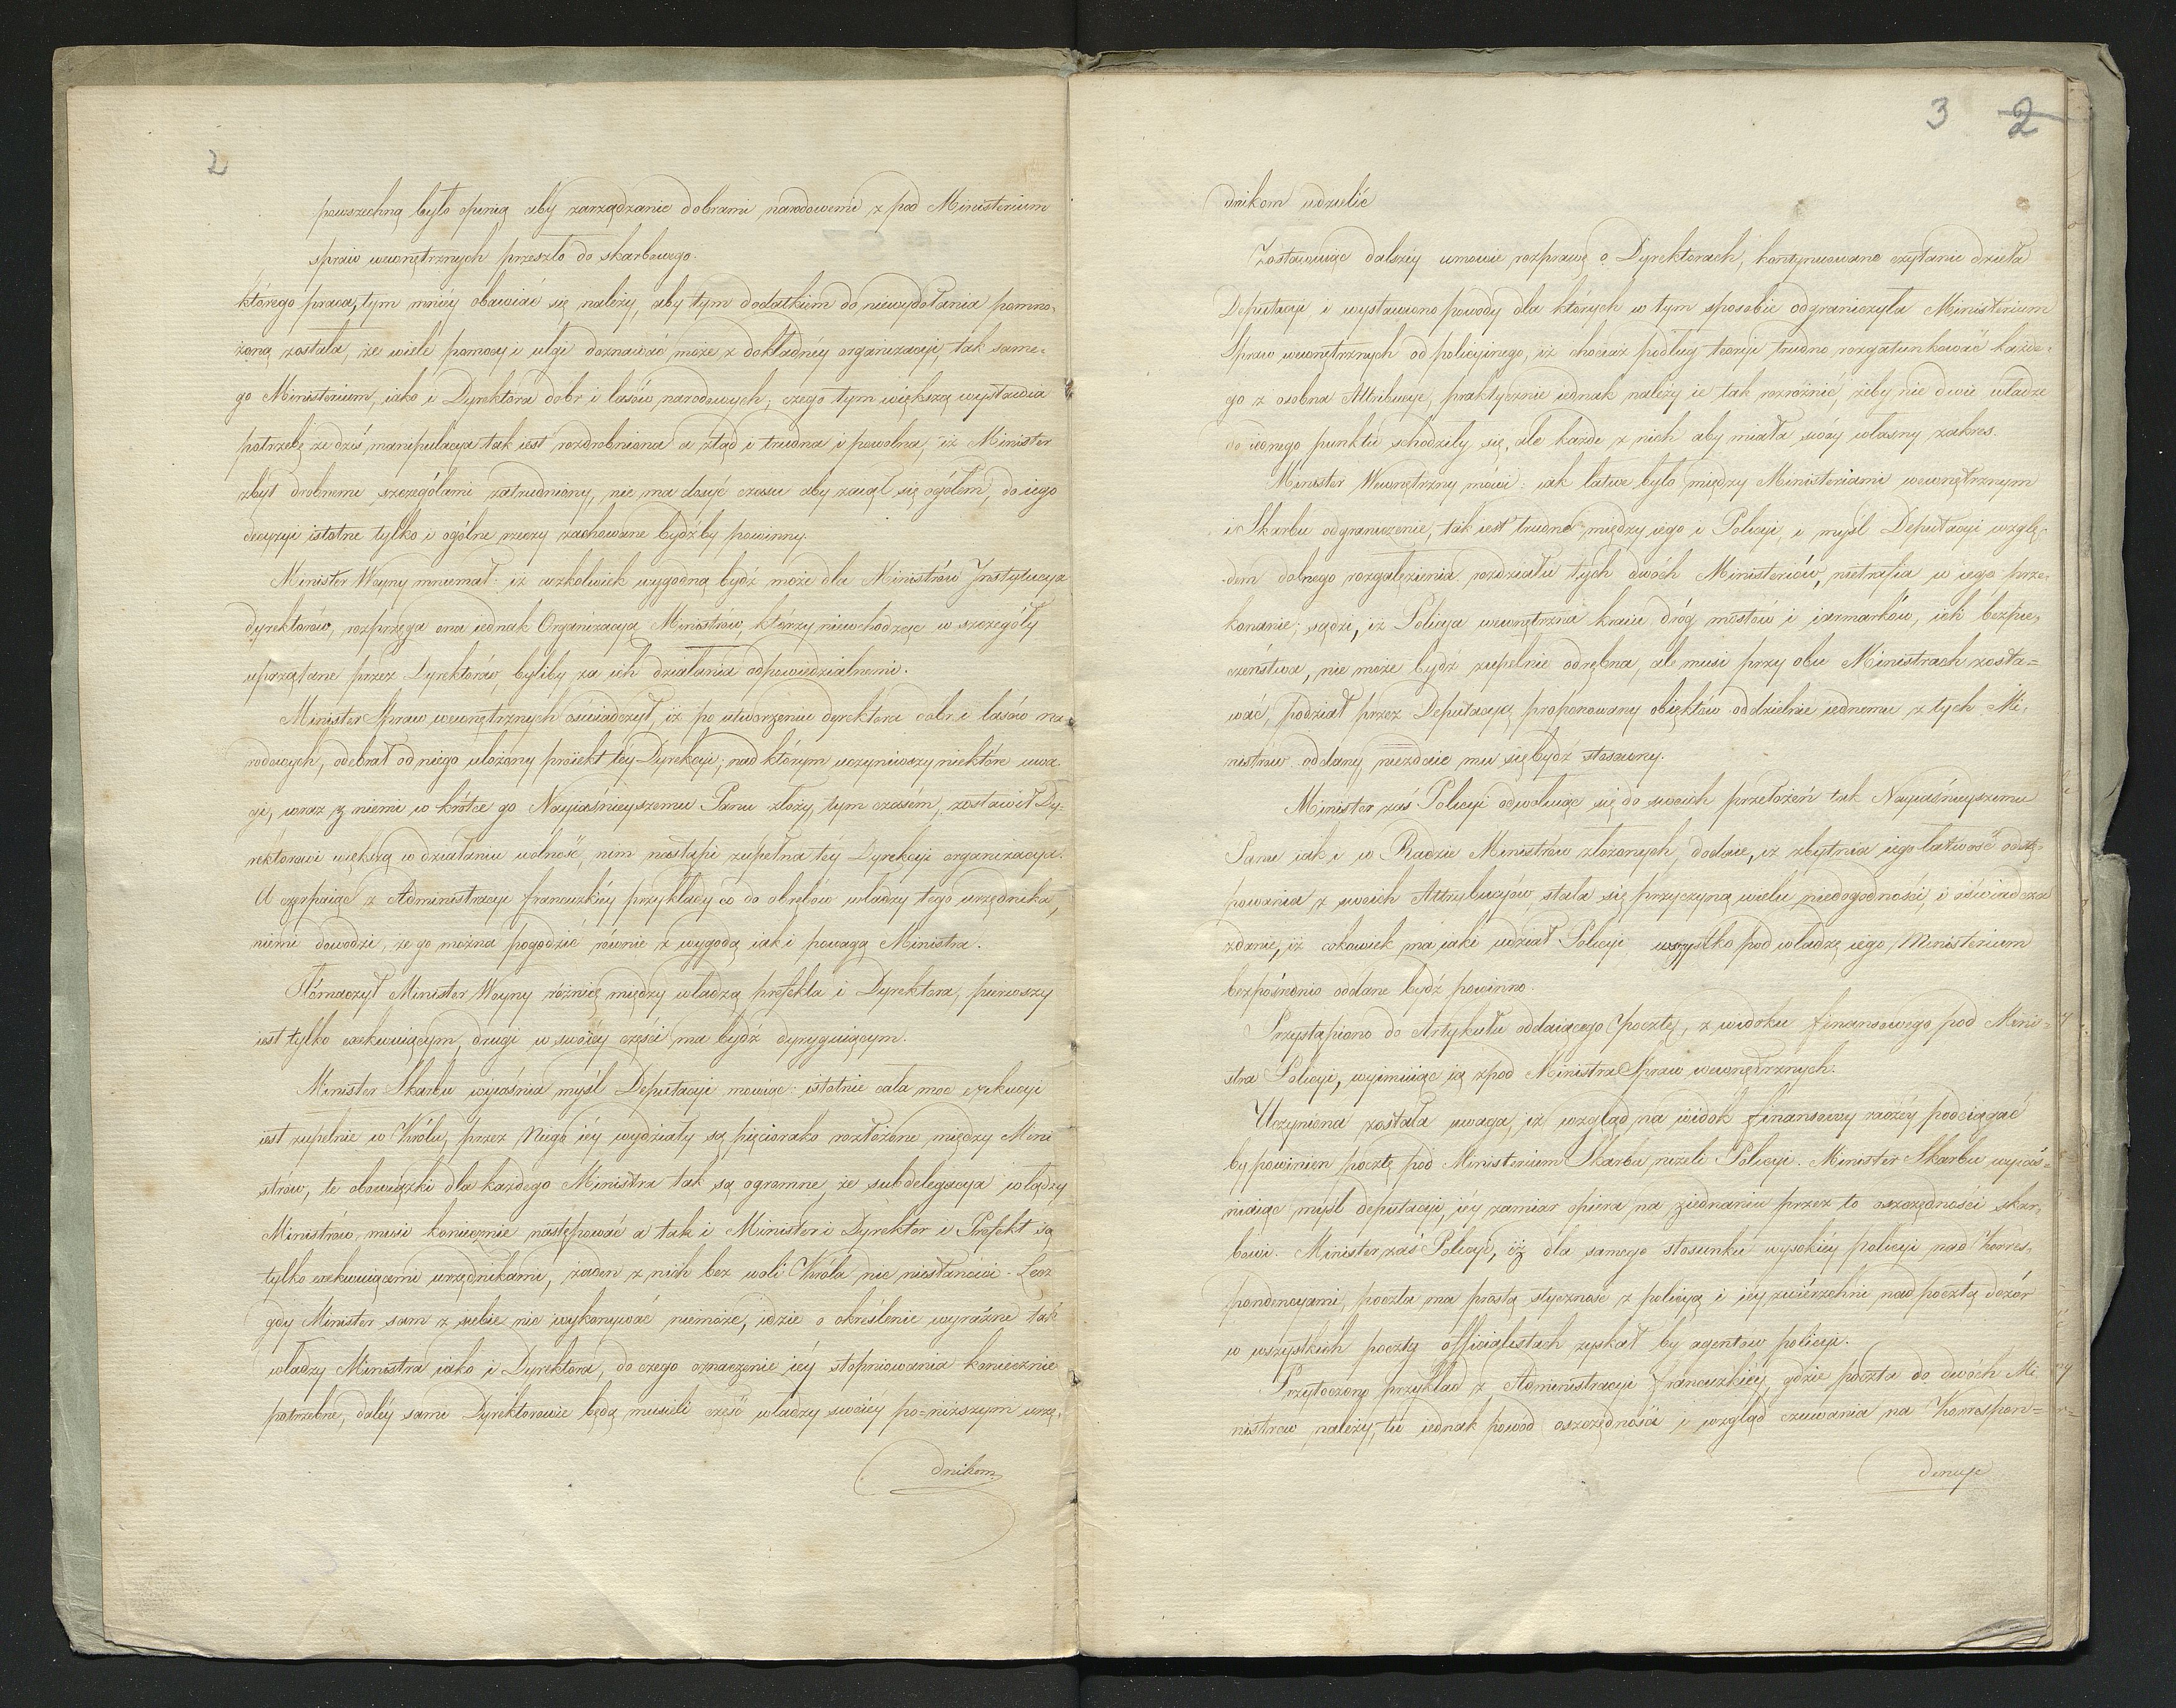 2
powszechną było opinią aby zarządzanie dobrami narodowemi z pod Ministerium
spraw wewnętrznych przeszło do skarbowego.
którego praca, tym mniéy obawiać się należy, aby tym dodatkiem do niewydołania pomno-
żoną została, że wiele pomocy i ulgi doznawać może z dokładnéy organizacyi, tak same-
go Ministerium, iako i Dyrektora dobr i lasów narodowych, czego tym większą wystawia
potrzebę że dziś manipulacya tak iest rozdrobniona a ztąd i trudna i powolna, iż Minister
zbyt drobnemi szczegółami zatrudniony, nie ma dosyć czasu aby zaiął się ogółem, do iego
decyzyi istotne tylko i ogólne rzeczy zachowane bydźby powinny.
Minister Woyny mniemał: iż aczkolwiek wygodną bydź może dla Ministrów Instytucya
dyrektorów, rozprzęga ona iednak Organizacyą Ministrów, którzy niewchodząc w szczegóły
uprzątane przez Dyrektorów, byliby za ich działania odpowiedzialnemi.
Minister Spraw wewnętrznych oświadczył, iż po utworzeniu dyrektora dobr i lasów na-
rodowych, odebrał od niego ułożony proiekt téy Dyrekcyi; nad którym uczyniwszy niektóre uwa
gi, wraz z niemi w krótce go Nayiaśnieyszemu Panu złoży, tym czasem, zostawił Dy-
rektorowi większą w działaniu wolność, nim nastąpi zupełna téy Dyrekcyi organizacya.
A czerpaiąc z Administracyi francuzkiéy przykłady co do obrębów władzy tego urzędnika,
niemi dowodzi, że go można pogodzić równie z wygodą iak i powagą Ministra.
Tłómaczył Minister Woyny różnicę między władzą prefekta i Dyrektora, pierwszy
iest tylko exekwuiącym, drugi w swoiéy części ma bydź dyryguiącym.
Minister Skarbu wyiaśnia myśl Deputacyi mowiąc: istotnie cała moc exekucyi
iest zupełnie w Królu, przez Niego iéy wydziały są pięciorako rozłożone między Mini
strów, te obowiązki dla każdego Ministra tak są ogromne, że subdelegacya władzy
Ministrów, musi koniecznie następować a tak i Minister i Dyrektor i Prefekt są
tylko exekwuiącemi urzędnikami, żaden z nich bez woli Króla nic niestanowi. Lecz
gdy Minister sam z siebie nic wykonywać niemoże, idzie o określenie wyraźne tak
władzy Ministra iako i Dyrektora, do czego oznaczenie iéy stopniowania koniecznie
potrzebne, daléy sami Dyrektorowie będą musieli część władzy swoiéy po-niższym urzę-
dnikom
3 2
dnikom udzielić
Zostawuiąc dalszéy umowie rozprawę o Dyrektorach, kontynuowano czytanie dzieła
Deputacyi i wystawiono powody dla których w tym sposobie odgraniczyła Ministerium
Spraw wewnętrznych od policyinego, iż chociaż podług teoryi trudno rozgatunkować każde-
go z osobna Attribucye, praktycznie iednak należy ie tak rozróżnić, żeby nie dwie władze
do iednego punktu schodziły się, ale każda z nich aby miała swóy własny zakres.
Minister Wewnętrzny mówi: iak łatwe było między Ministeriami wewnętrznym
i Skarbu odgraniczenie, tak iest trudne między iego i Policyi, i myśl Deputacyi wzglę-
dem dolnego rozgałęzienia rozdziału tych dwóch Ministeriów, nietrafia w iego prze-
konanie; sądzi, iż Policya wewnętrzna kraiu dróg mostów i iarmarków, ich bezpie-
czeństwa, nie może bydź zupełnie odrębna, ale musi przy obu Ministrach zosta-
wać, podział przez Deputacyą proponowany obięktów oddzielnie iednemu z tych Mi-
nistrów oddany, niezdaie mu się bydź stosowny.
Minister zaś Policyi odwołuiąc się do swoich przełożeń tak Nayiaśnieyszemu
Panu iak i w Radzie Ministrów złożonych, dodaie, iż zbytnia iego łatwość odstę-
powania z swoich Attrybucyów, stała się przyczyną wielu niedogodności, i oświadcza
zdanie, iż cokowiek ma iaki udział Policyi, wszystko pod władzę iego Ministerium
bezpośrednio oddane bydź powinno.
Przystąpiono do Artykułu oddaiącego Pocztę, z widoku finansowego, pod Mini-
stra Policyi, wyimuiąc ią zpod Ministra Spraw wewnętrznych.
Uczyniona została uwaga, iż wzgląd na widok finansowy raczéy podciągać
by powinien pocztę pod Ministerium Skarbu niżeli Policyi. Minister Skarbu wyiaś-
niaiąc myśl deputacyi, iéy zamiar opiera na ziednaniu przez to oszczędności skar-
bowi. Minister zaś Policyi, iż dla samego stosunku wysokiéy policyi nad Korres-
pondencyami, poczta ma prostą styczność z policyą i iéy zwierzchni nad pocztą dozór
w wszystkich poczty officialistach zyskał by agentów policyi.
Przytoczono przykład z Administracyi francuzkiéy, gdzie poczta do dwóch Mi
nistrów należy, tu iednak powód oszczędności i wzgląd czuwania na Korrespon-
dencye